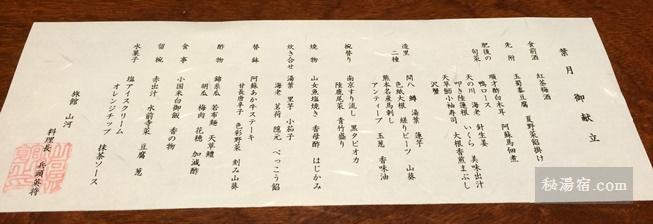 葉月 御献立
食前酒 紅茶梅酒
先附 玉蜀黍豆腐 夏野菜餡掛け
順才酢白木耳 阿蘇馬佃煮
肥後の 鴨ロース
旬菜 天の川 海老 針生姜 美味出汁
叩き陸蓮根 いくら
天草鯛小袖寿司 大根香煎まぶし
沢蟹
造里 間八 鱒 湯葉 蓮芋
二種 色紙大根 縒りビーツ 山葵
熊本名産馬刺し
アンティーブ 玉葱 香味油
椀替り 南京すり流し 黒タピオカ
陸鹿尾菜 青竹盛り
焼物 山女魚塩焼き 香母酢 はじかみ
炊き合せ 湯葉 里芋 小茄子
海老 茗荷 隠元 べっこう餡
替鉢 阿蘇あか牛ステーキ
甘長唐辛子 色彩野菜 刻み山葵
酢物 錦糸瓜 若布麺 天草鱧
胡瓜 梅肉 花穂 加減酢
食事 小国米白御飯 香の物
留椀 赤出汁 水前寺菜 豆腐 葱
水菓子 塩アイスクリーム 抹茶ソース
オレンジチップ
旅館 山河 料理長 兵頭英将
秘湯宿.com